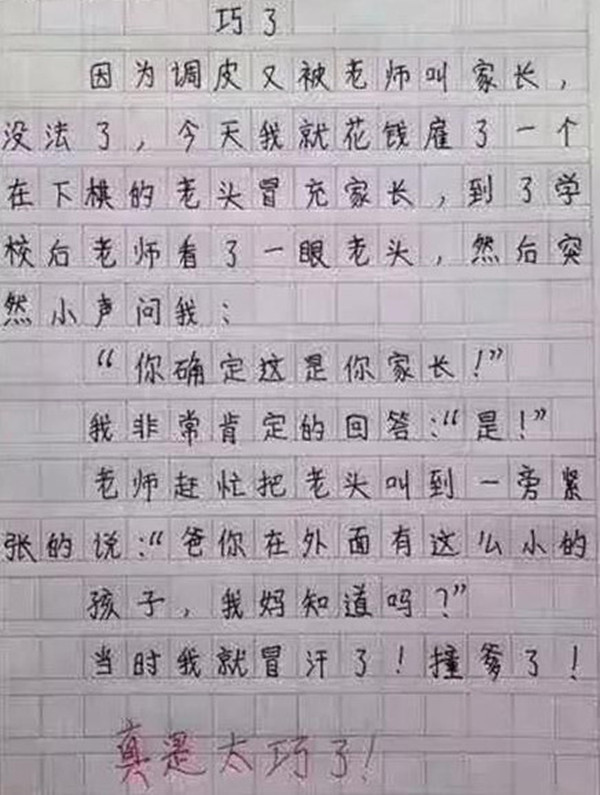 巧了
因为调皮又被老师叫家长，
没法了，今天我就花钱雇了一个
在下棋的老头冒充家长，到了学
校后老师看了一眼老头，然后突
然小声问我：
“你确定这是你家长！”
我非常肯定的回答：“是！”
老师赶忙把老头叫到一旁紧
张的说：“爸你在外面有这么小的
孩子，我妈知道吗？”
当时我就冒汗了！撞爹了！
真是太巧了！